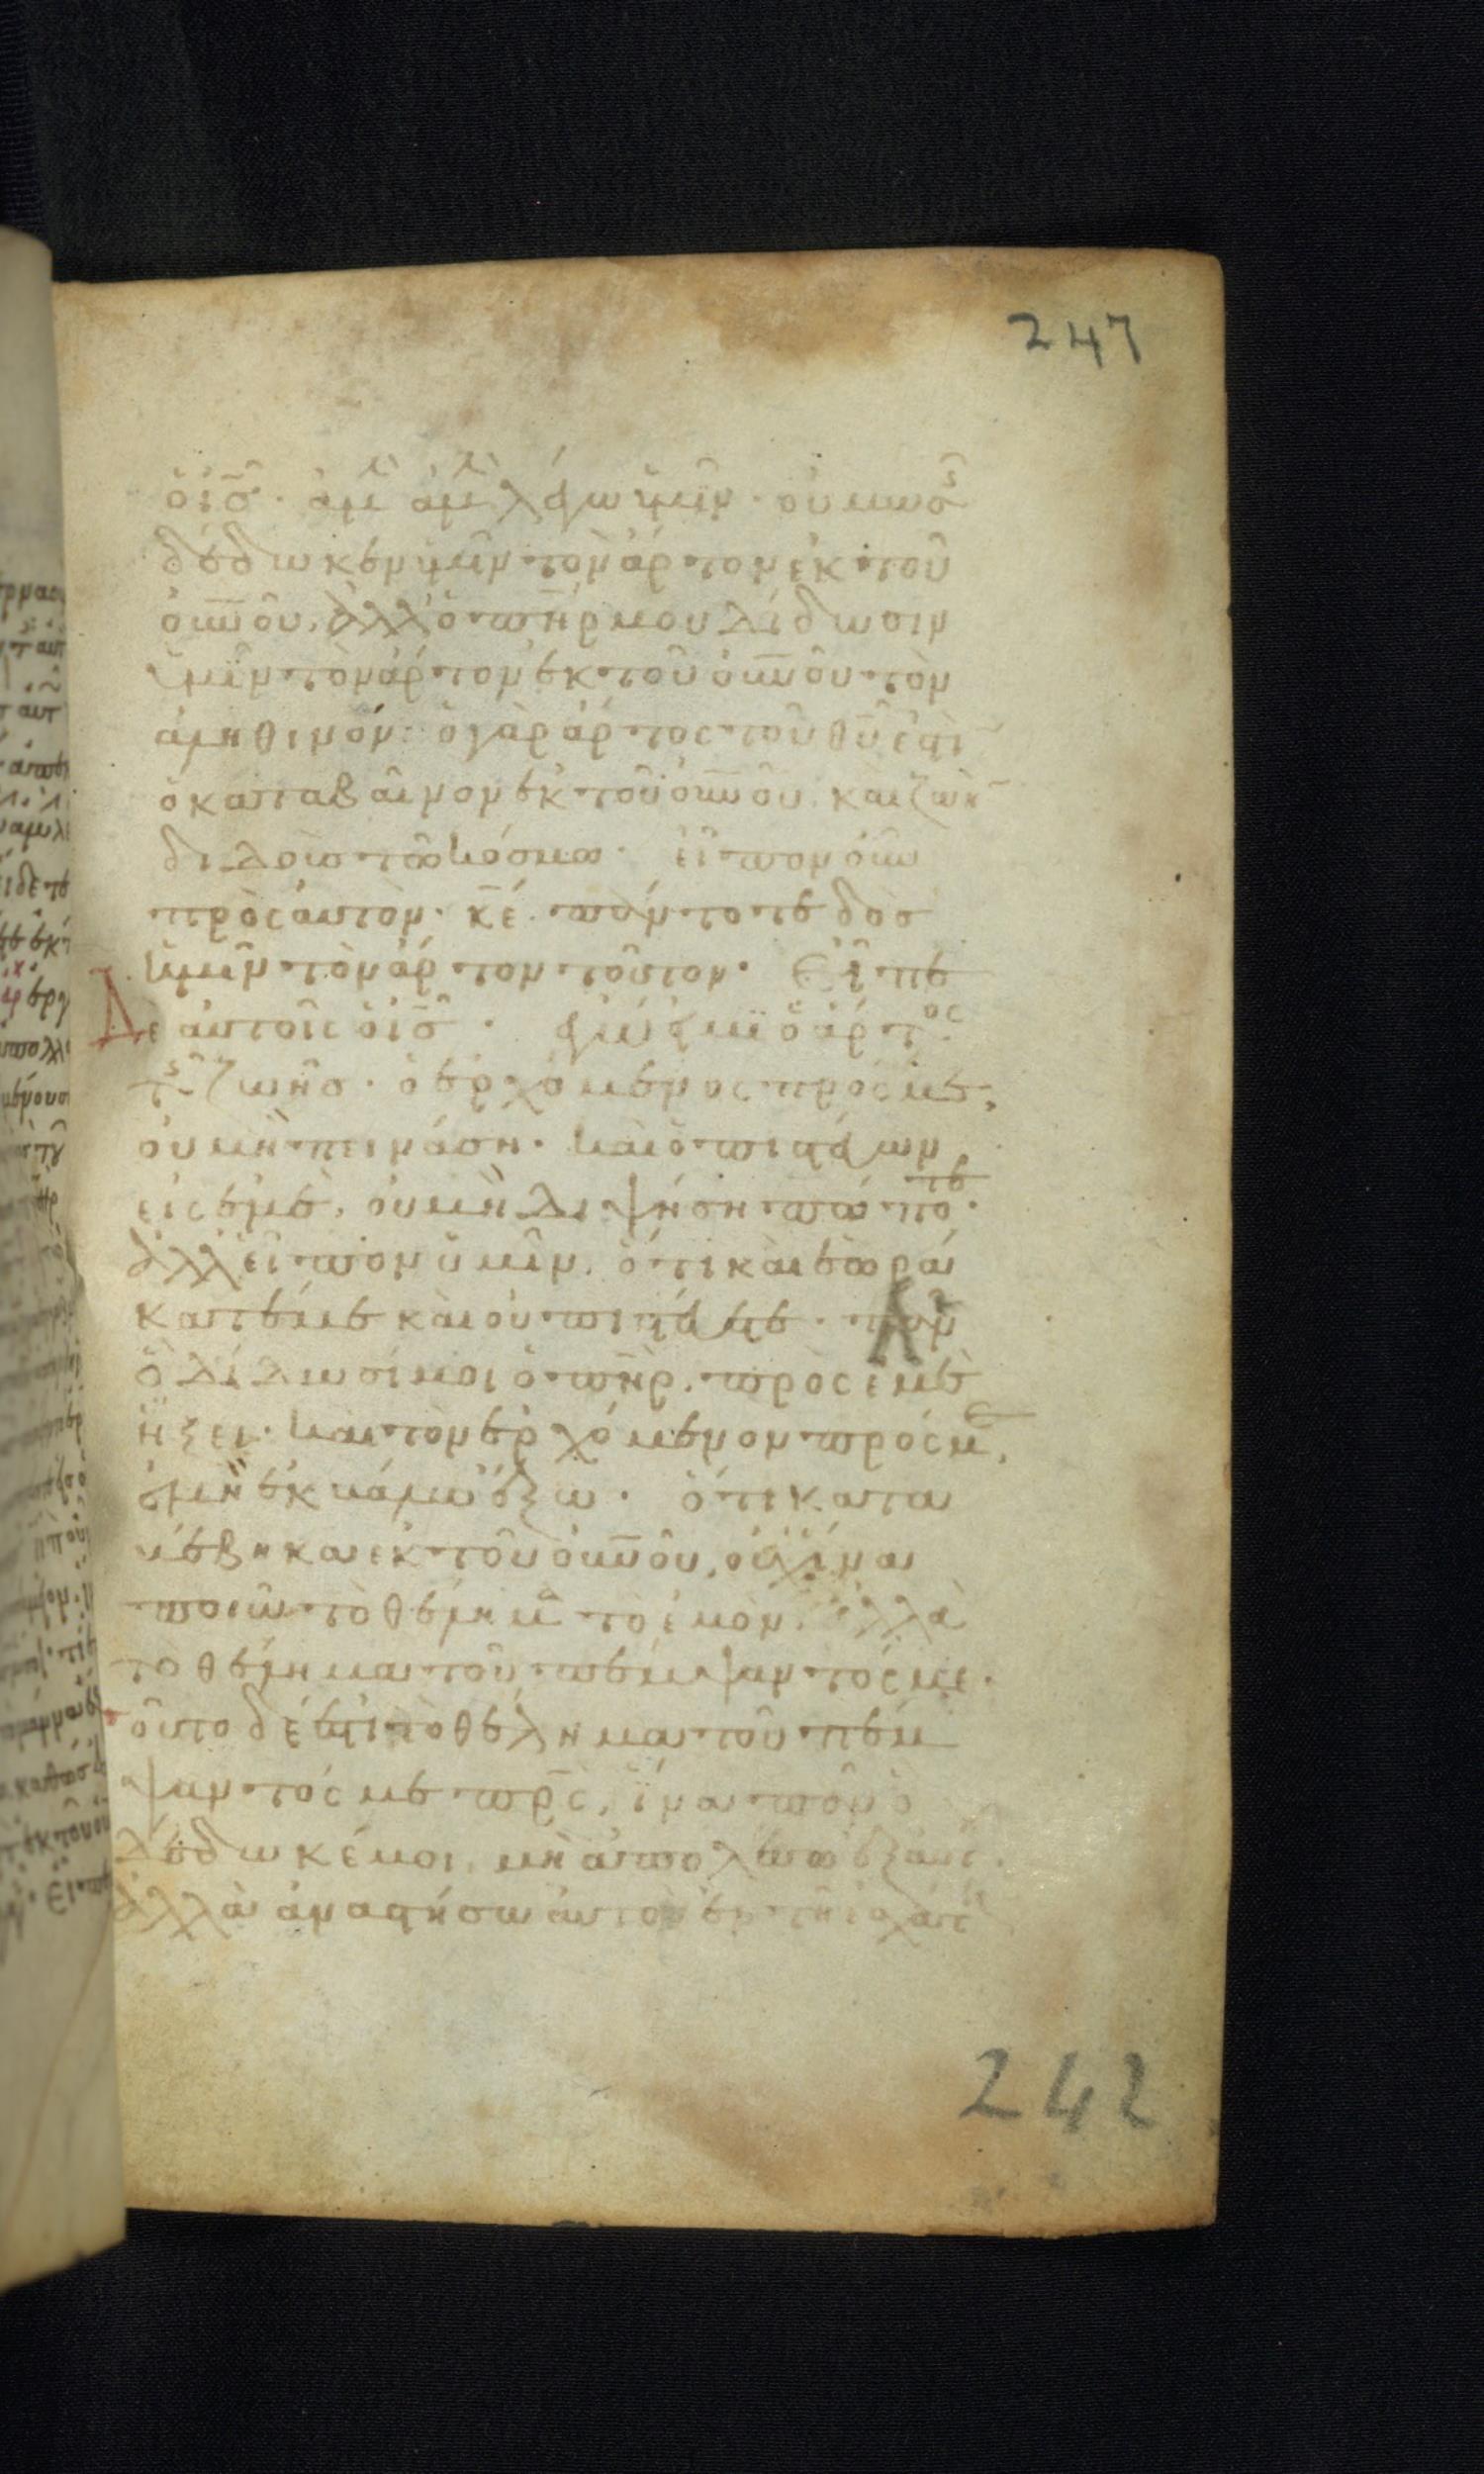 247
ὁ ἰς̅. ἀμὴν ἀμὴν λέγω ὑμῖν. οὐ μωσῆς
δέδωκεν ὑμῖν τὸν ἄρτον ἐκ τοῦ
οὐνοῦ. ἀλλ' ὁ πηρ μου δίδωσιν
ὑμῖν τὸν ἄρτον ἐκ τοῦ οὐνοῦ τὸν
ἀληθινόν· ὁ γὰρ ἄρτος τοῦ θυ ἐστὶ
ὁ καταβαίνων ἐκ τοῦ οὐνοῦ. καὶ ζωὴν
διδοὺς τῶ κόσμω. εἶπον οὖν
πρὸς αὐτόν. κε πάντοτε δὸς
ἡμῖν τὸν ἄρτον τοῦτον. Εἶπε
Δε αὐτοῖς ὁ ἰς̅. ἐγώ εἰμι ὁ ἄρτος
τῆς ζωῆς. ὁ ἐρχόμενος πρός με,
οὐ μὴ πεινάση. καὶ ὁ πιστεύων
εἰς ἐμὲ, οὐ μὴ διψήση πώποτε.
ἀλλ' εἶπον ὑμῖν. ὅτι καὶ ἑωρά
κατέ με καὶ οὐ πιστεύετε. πᾶν
ὃ δίδωσί μοι ὁ πηρ. πρὸς ἐμὲ
ἥξει. καὶ τὸν ἐρχόμενον πρός με,
οὐ μὴ ἐκβάλω ἔξω. ὅτι κατα
βέβηκα ἐκ τοῦ οὐνοῦ, οὐχ ἵνα
ποιῶ τὸ θέλημα τὸ ἐμὸν. ἀλλὰ
τὸ θέλημα τοῦ πέμψαντός με.
τοῦτο δέ ἐστι τὸ θέλημα τοῦ πέμ
ψαντός με πρς, ἵνα πᾶν ὃ
δέδωκέ μοι, μὴ ἀπολέσω ἐξ αὐτοῦ.
ἀλλὰ ἀναστήσω αὐτὸ ἐν τῆ ἐσχάτη
242